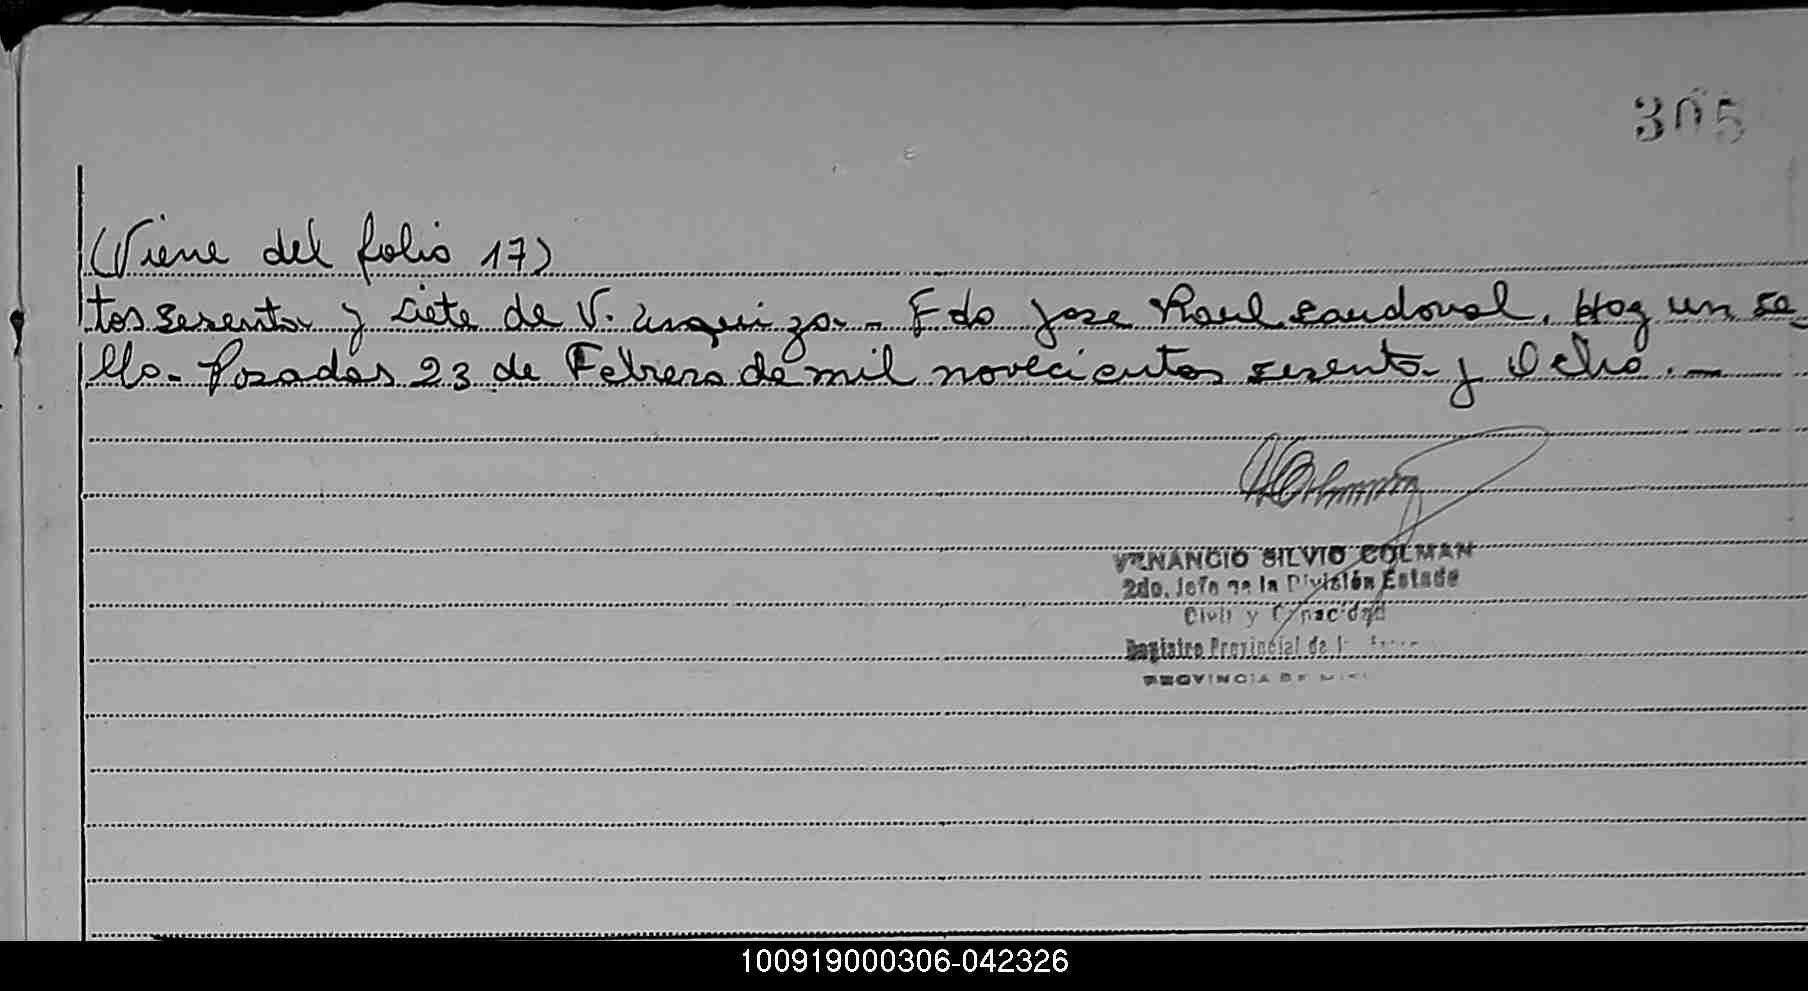 305
(Viene del folio 17)
tos sesenta y siete de V. Urquiza - Fdo Jose Raul Sandoval. Hay un se-
llo - Posadas 23 de Febrero de mil novecientos sesenta y Ocho. -
VENANCIO SILVIO COLMAN
2do. Jefe de la División Estado
Civil y Capacidad
Registro Provincial de
PROVINCIA DE
100919000306-042326